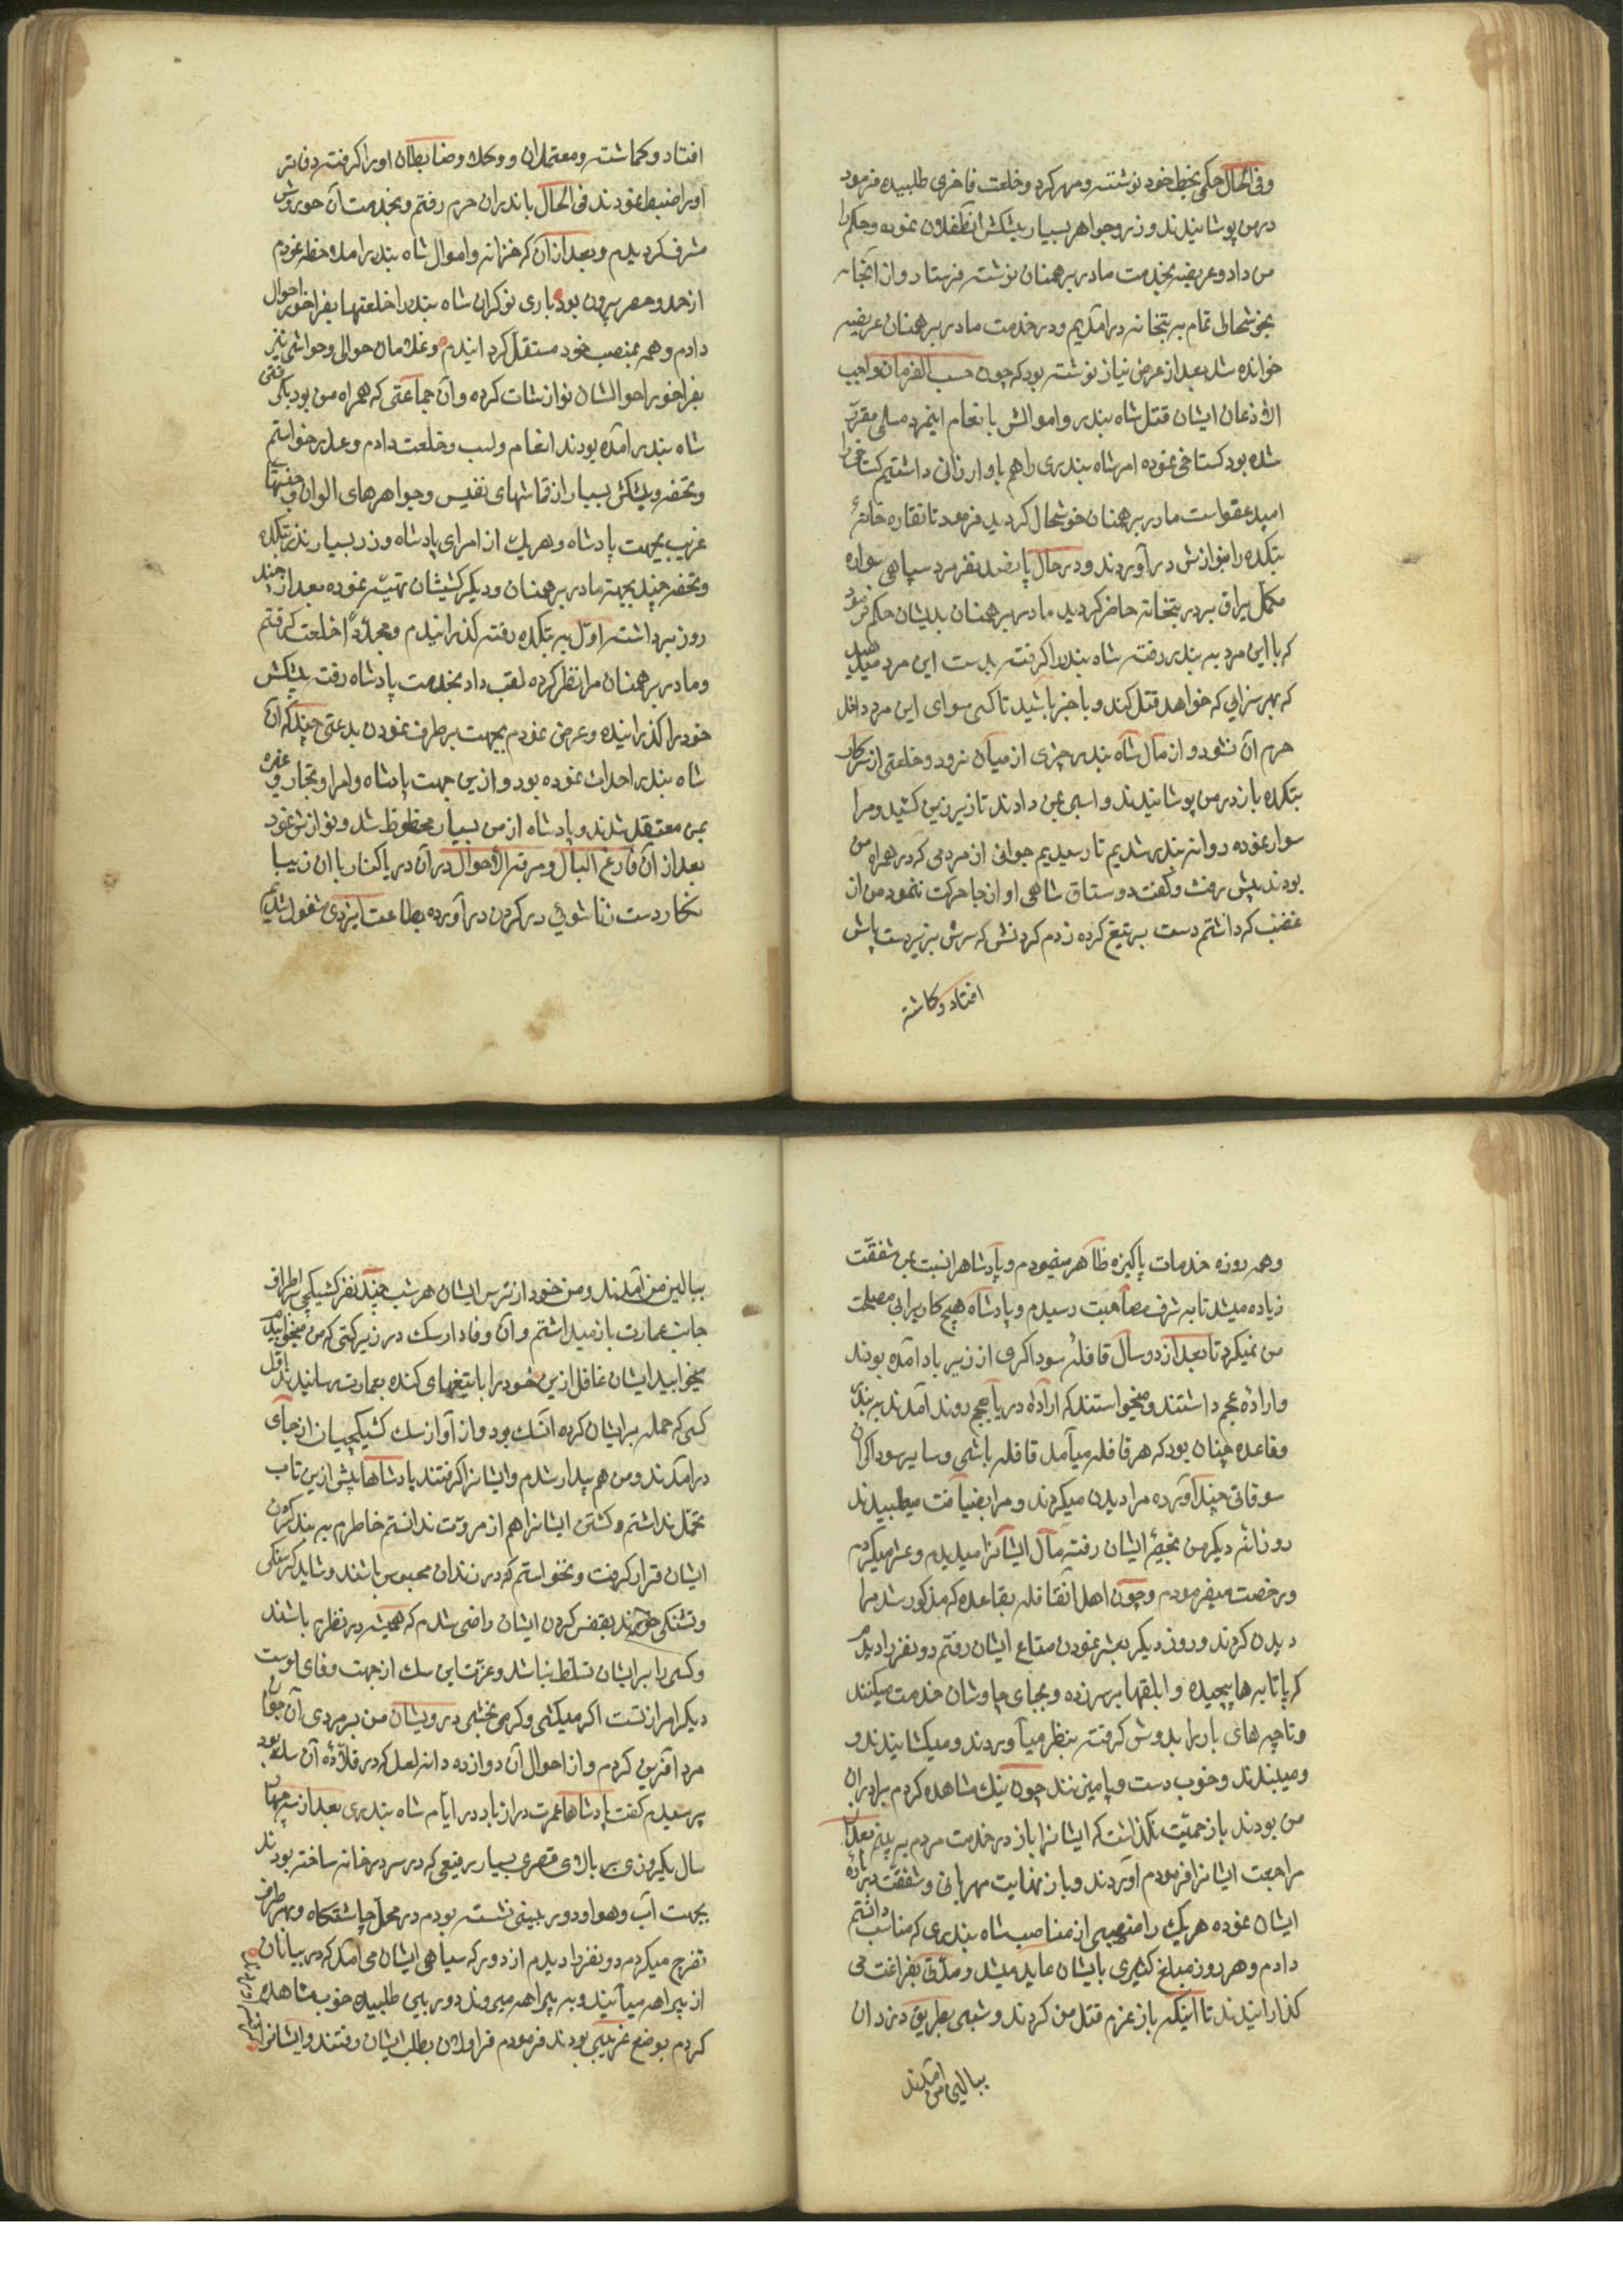 وفی الحال حکمی بخط خود نوشته ومهر کرد وخلعت فاخری طلبیده فرمود
در من پوشانیدند وزر وجواهر بسیار پیشکش آنطفلان نموده وحکم را
من داد وعریضه بخدمت مادر برهمنان نوشته فرستاد واز آنجا به
بخوشحالی تمام به بتخانه درآمدیم ودر خدمت مادر برهمنان عریضه
خوانده شد بعد از عرض نیاز نوشته بود که چون حسب الفرمان واجب
الاذعان ایشان قتل شاه بندر واموالش بانعام اینمرد مسلمی مقرر
شده بود کستاخی نموده امر شاه بندری را هم باو ارزانی داشتیم کستاخی را
امید عفو است مادر برهمنان خوشحال کردید فرمود تا نقاره خانهٔ
بتکده را بنوازش درآوردند ودر حال پانصد نفر مرد سپاهی سواره
مکمل یراق بر در بتخانه حاضر کردید مادر برهمنان بدیشان حکم فرمود
که با این مرد به بندر رفته شاه بندر را کرفته بدست این مرد میدهید
که بهر سزایی که خواهد قتل کند وباخبر باشید تا کسی سوای این مرد داخل
حرم آن نشود واز مال شاه بندر چیزی از میان نرود وخلعتی از سرکار
بتکده باز در من پوشانیدند واسبی بمن دادند تا زیر زین کشید ومرا
سوار نموده روانه بندر شدیم تا رسیدیم جوانی از مردمی که در همراه من
بودند پیش رفت وکفت دوستاق شاهی او از جا حرکت ننمود من از
غضب که داشتم دست بر تیغ کرده زدم کردنش که سرش بزیر دست پاش
افتاد وکماشته
افتاد وکماشته ومعتمدان ووکلا وضابطان اورا کرفته دفاتر
اورا ضبط نمودند فی الحال باندران حرم رفتم وبخدمت آن حوروش
مشرف کردیدم وبعد از آن که خزانه واموال شاه بندر را ملاحظه نمودم
از حد وحصر بیرون بود باری نوکران شاه بندر را خلعتها بفراخور احوال
دادم وهمه بمنصب خود مستقل کردانیدم وغلامان حوالی وحواشی نیز
بفراخور احوالشان نوازشات کرده وآن جماعتی که همراه من بودبکرفتن
شاه بندر آمده بودند انعام واسب وخلعت دادم وعذر خواستم
وتحفه وپیشکش بسیار از قماشهای نفیس وجواهرهای الوان وجنسهای
غریب بجهت پادشاه وهر یک از امرای پادشاه وزر بسیار نذر بتکده
وتحفه چند بجهة مادر برهمنان ودیکر کشیشان تهیه نموده بعد از چند
روز برداشته اول به بتکده رفته کذرانیدم ومجدداً خلعت کرفتم
ومادر برهمنان مرا نظر کرده لقب داد بخدمت پادشاه رفته پیشکش
خود را کذرانیده وعرض نمودم بجهت برطرف نمودن بدعتی چند که آن
شاه بندر احداث نموده بود وازین جهت پادشاه وامرا وتجار وغیره
بمن معتقد شدند وپادشاه از من بسیار محظوظ شد ونوازش نمود
بعد از آن فارغ البال ومرفه الاحوال در آن دریاکنار با آن زیبا
نکار دست زناشوئی در کردن درآورده بطاعت ایزدی مشغول شدیم
وهمه روزه خدمات پاکیزه ظاهر مینمودم وپادشاهرا نسبت بمن شفقت
زیاده میشد تا به شرف مصاحبت رسیدم وپادشاه هیچ کاریرا بی مصلحت
من نمیکرد تا بعد از دو سال قافلهٔ سوداکری از زیرباد آمده بودند
وارادهٔ عجم داشتند ومیخواستند که از راه دریا بعجم روند آمدند به بندر
وقاعده چنان بود که هر قافله میآمد قافله باشی وسایر سوداکران
سوغاتی چند آورده مرا دیدن میکردند ومرا بضیافت میطلبیدند
روزانهٔ دیکر من بخیمهٔ ایشان رفته مال ایشانرا میدیدم وعشر میکردم
ورخصت میفرمودم وچون اهل آنقافله بقاعده که مذکور شد مرا
دیدن کردند وروز دیکر بعشر نمودن متاع ایشان رفتم دو نفر را دیدم
که پاتابه ها پیچیده وابلقها بر سر زده وبجای چاوشان خدمت میکنند
وتاچه های بار را بدوش کرفته بنظر میآوردند ومیکشانیدند و
ومیبندند وخوب دست وپا میزنند چون نیک مشاهده کردم برادران
من بودند باز حمیّت نکذاشت که ایشانرا باز در خدمت مردم به بینم بعد از
مراجعت ایشانرا فرمودم آوردند وباز نهایت مهربانی وشفقت در بارهٔ
ایشان نموده هر یک را منصبی از مناصب شاه بندری که مناسب دانستم
دادم وهر روز مبلغ کثیری بایشان عاید میشد ومدّتی بفراغت می
کذرانیدند تا آنیکه باز عزم قتل من کردند وشبی بطریق دزدان
ببالین من آمدند
ببالین من آمدند ومن خود از ترس ایشان هر شب چند نفر کشیکچی اطراف
جانب عمارت باز میداشتم وآن وفادار سک در زیر کتی که من میخوابیدم
میخوابید ایشان غافل ازین خود را با تیغهای کنده بعمارت رسانیدند اوّل
کسی که حمله بر ایشان کرده آنسک بود واز آواز سک کشیکچیان از جای
درآمدند ومن هم بیدار شدم وایشانرا کرفتند پادشاها پیش ازین تاب
تحمّل نداشتم وکشتن ایشانرا هم از مروّت ندانستم خاطرم به بند کردن
ایشان قرار کرفت ونخواستم که در زندان محبوس باشند وشاید کرسنکی
وتشنکی خورند بقفس کردن ایشان راضی شدم که همیشه در نظرم باشند
وکسی را بر ایشان تسلّط نباشد وعزّت این سک از جهت وفای اوست
دیکر امر از تست اکر میکشی وکر می بخشی درویشان من بر مردی آن جوان
مرد آفرین کردم واز احوال آن دوازده دانه لعل که در قلّادهٔ آن سک بود
پرسیدم کفت پادشاها عمرت دراز باد در ایّام شاه بندری بعد از سه چهار
سال یکروزی بر بالای قصری بسیار رفیعی که در سر درخانه ساخته بودند
بجهت آب وهوا ودوربینی نشسته بودم در محل چاشتکاه وبهر طرف
تفرج میکردم دو نفر را دیدم از دور که سیاهی ایشان می آمد که در بیابان
از بیراهه میآیند وبه بیراهه میروند دوربینی طلبیده خوب مشاهده
کردم بوضع غریبی بودند فرمودم قراولان بطلب ایشان رفتند وایشانرا